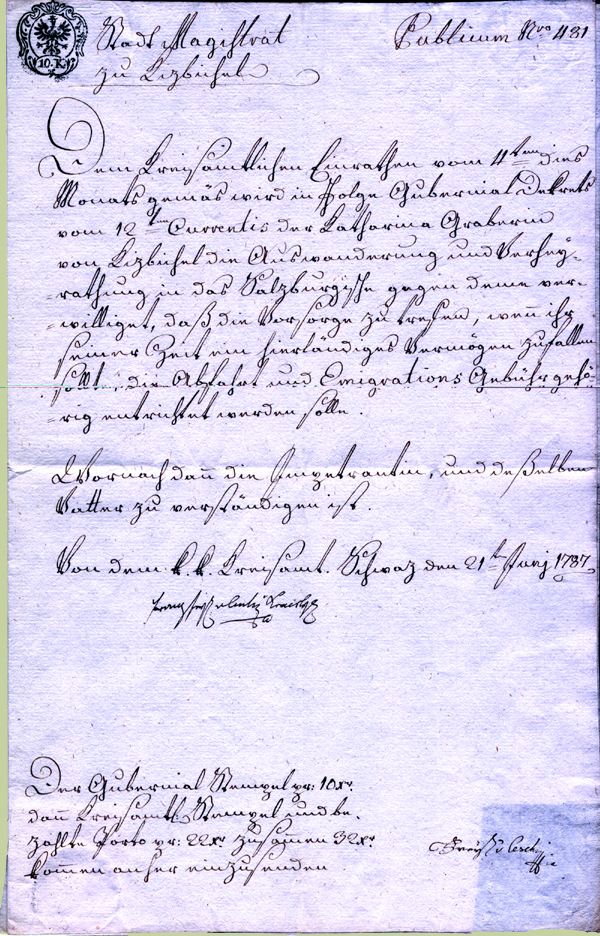 10. K.
Stadt Magistrat Publicum Nro 431
zu Kizbichel
Dem Kreisamtlichen Einrathen vom 4ten dies
Monats gemäs wird in Folge Gubernial Dekrets
vom 12ten Currentis der Katharina Graberin
von Kizbichel die Auswanderung und Verhey-
rathung in das Salzburgische gegen deme ver-
williget, daß die Vorsorge zu trefen, wenn ihr
seiner Zeit ein hierländiges Vermögen zufallen
sollt, die Abfahrt und Emigrations Gebühr gehö-
rig entrichtet werden solle.
Wornach dann die Impetrantin, und deßelben
Vatter zu verständigen ist.
Von dem k. k. Kreisamt. Schwaz den 21t Junj 1787
Der Gubernial Stempel pr: 10xr
dann Kreisamtl. Stempel und be-
zahlte Porto pr: 22xr zusammen 32xr
kommen anher einzusenden